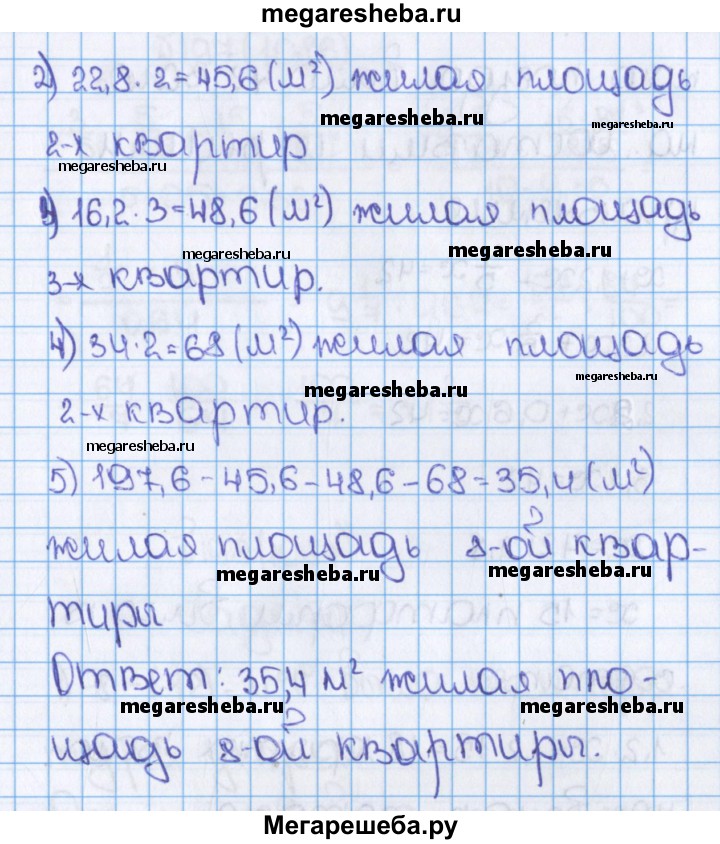 megaresheba.ru
2) 22,8 · 2 = 45,6 (м²) жилая площадь
megaresheba.ru
megaresheba.ru
2-х квартир
megaresheba.ru
3) 16,2 · 3 = 48,6 (м²) жилая площадь
megaresheba.ru
megaresheba.ru
3-х квартир.
4) 34 · 2 = 68 (м²) жилая площадь
megaresheba.ru
megaresheba.ru
2-х квартир.
megaresheba.ru
5) 197,6 - 45,6 - 48,6 - 68 = 35,4 (м²)
жилая площадь 8-ой квар-
megaresheba.ru
megaresheba.ru
тиры
Ответ: 35,4 м² жилая пло-
megaresheba.ru
megaresheba.ru
щадь 8-ой квартиры.
Мегарешеба.ру